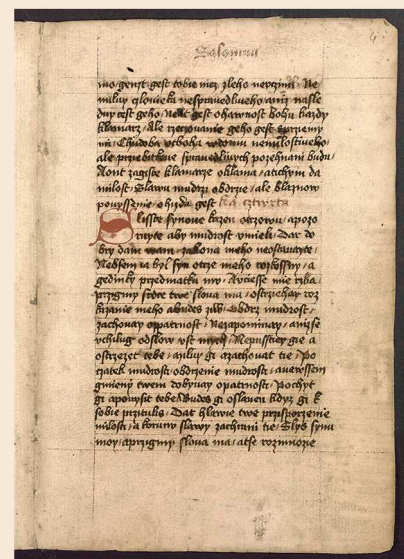 Salomun
mo genzt gest tobie nicz zleho neyczini Ne
miluy czlowieka nesprawedliweho anij nasle
duy cest geho Neb gest ohawnost bohu kazdy
klamarz / Ale geho gest sprziemy
mi Chudoba wdomu nemilostiweho
ale prziebitkowe sprawedliwych pozehnani budu
Aont zagiste klamarze oklama / atichym da
milost Slawu mudrzi obdrzie / ale blaznow
powyssenie ohizda gest Ka cztwrta
Slisste synowe kazen otczowu / apozo
ruyte aby mudrost vmieli Dar do
bry dam wam zakona meho neostawuyte
Nebsem ia byl syn otcze meho / a
gedinky przedmatku mu Avciesse mie
przigmy srdce twe slowa ma / ostrziehay
kazanie meho abudes ziw Obdrz mudrost /
zachoway opatrnost Nezapominay / anizse
vchilug odslow vst mych Nepusstiey gie a
ostrziezet tebe / miluy gi azachowat tie Po
czatek mudrosti obdrzenie mudrosti / awewssem
gmieny twem dobyway opatrnosti Pochyt
gi apowyssit tebe budes gi oslawen kdyz gi k
sobie przitulis Dat hlawie twe przisporzenie
milosti / a korunu slawy zachrani tie Slys synu
moy / aprzigmy slowa ma / atse rozmnozie